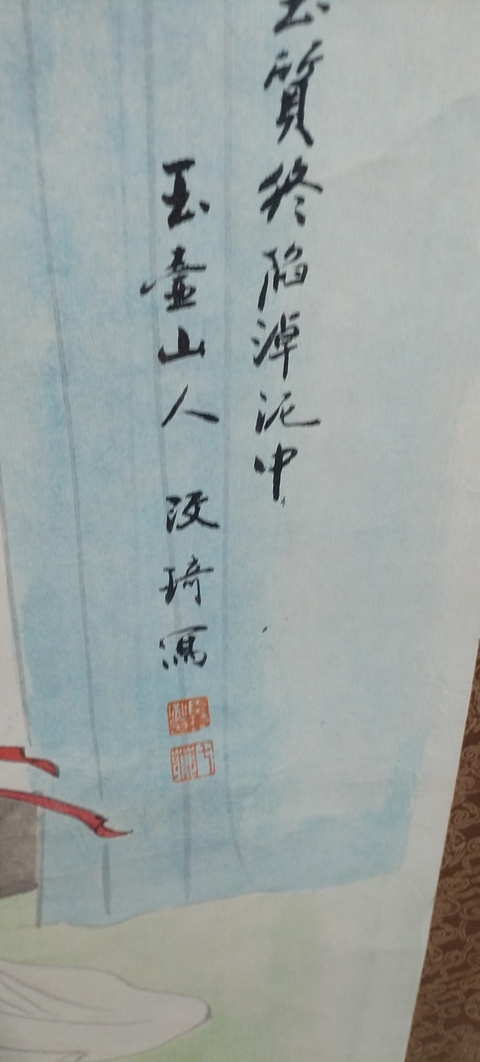 玉質終陷淖泥中
玉壺山人 改琦寫